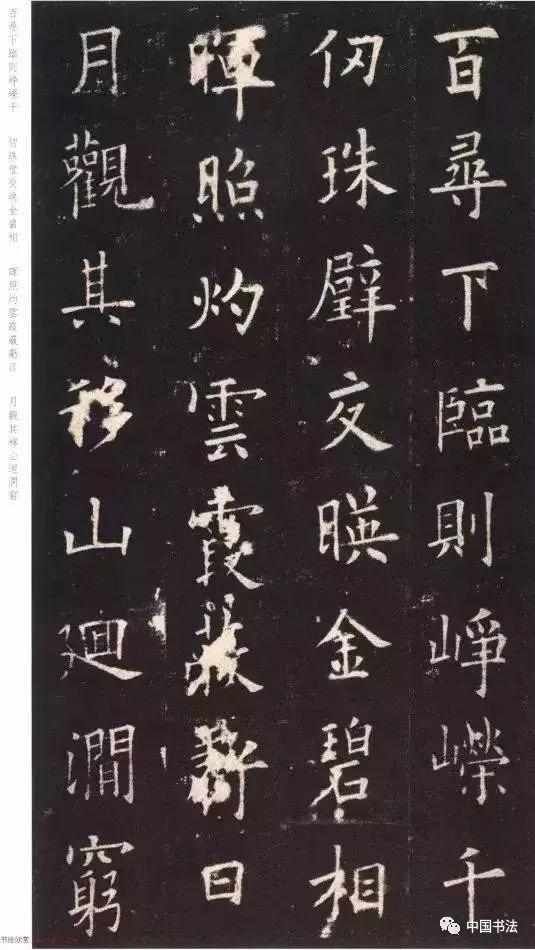 百尋下臨則崢嶸千
仞珠璧交暎金碧相
暉照灼雲霞蔽虧日
月觀其移山迴澗窮
百尋下臨則崢嶸千 仞珠璧交暎金碧相 暉照灼雲霞蔽虧日 月觀其移山迴澗窮
中国书法